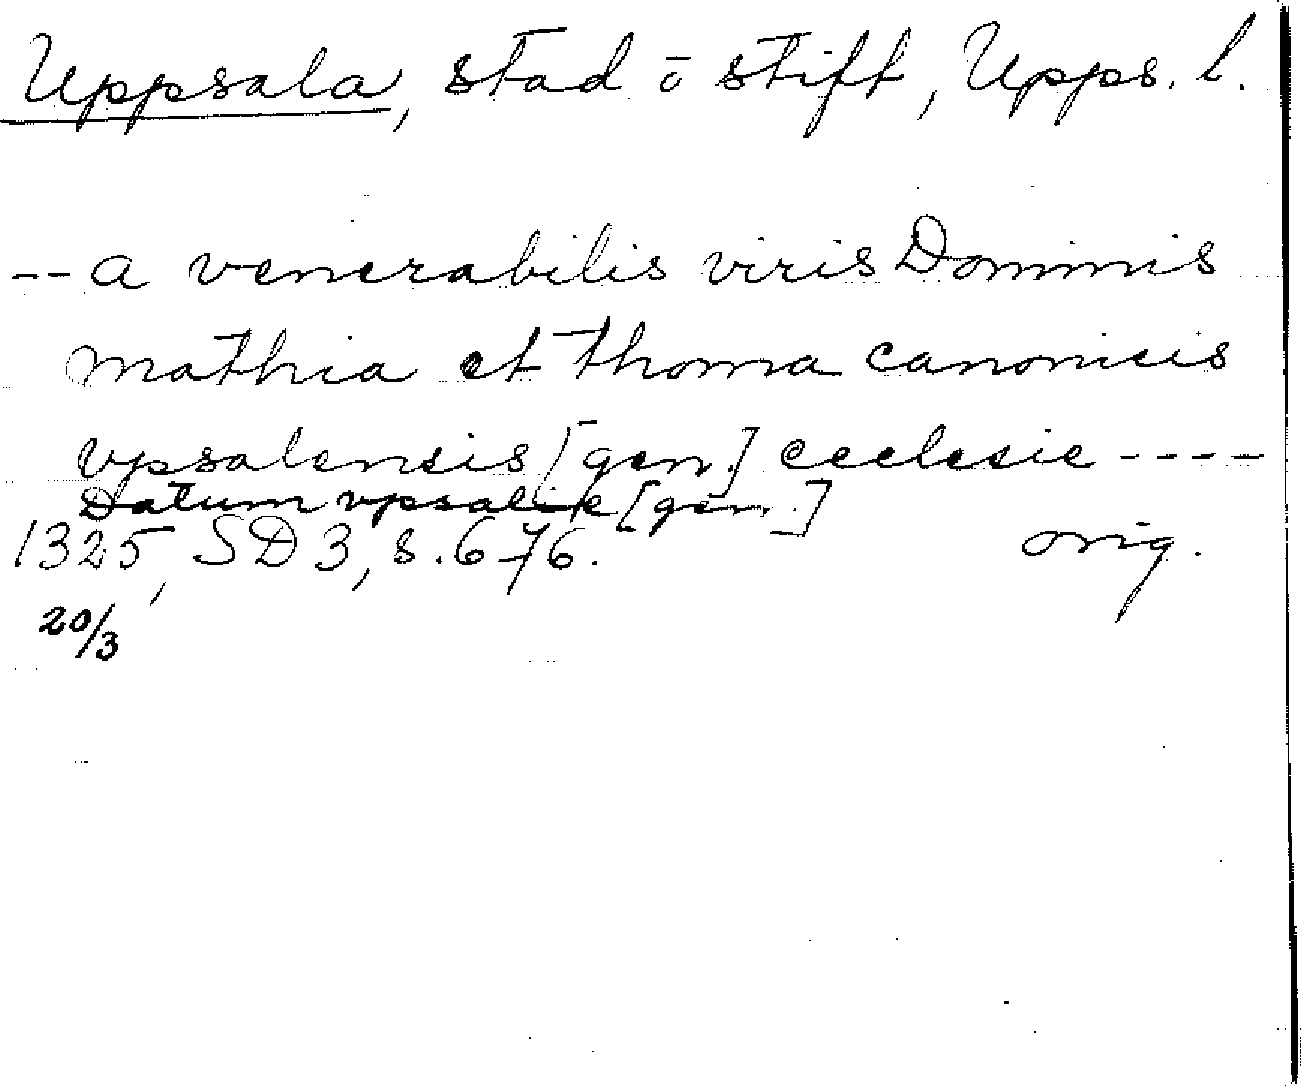 Uppsala, stad ō stift, Upps. l.
-- a venerabilis viris Dominis
mathia et thoma canonicis
vpsalensis [gen.] ecclesie ----
Datum vpsalie [gen.]
1325, SD 3, s. 676. orig.
20/3